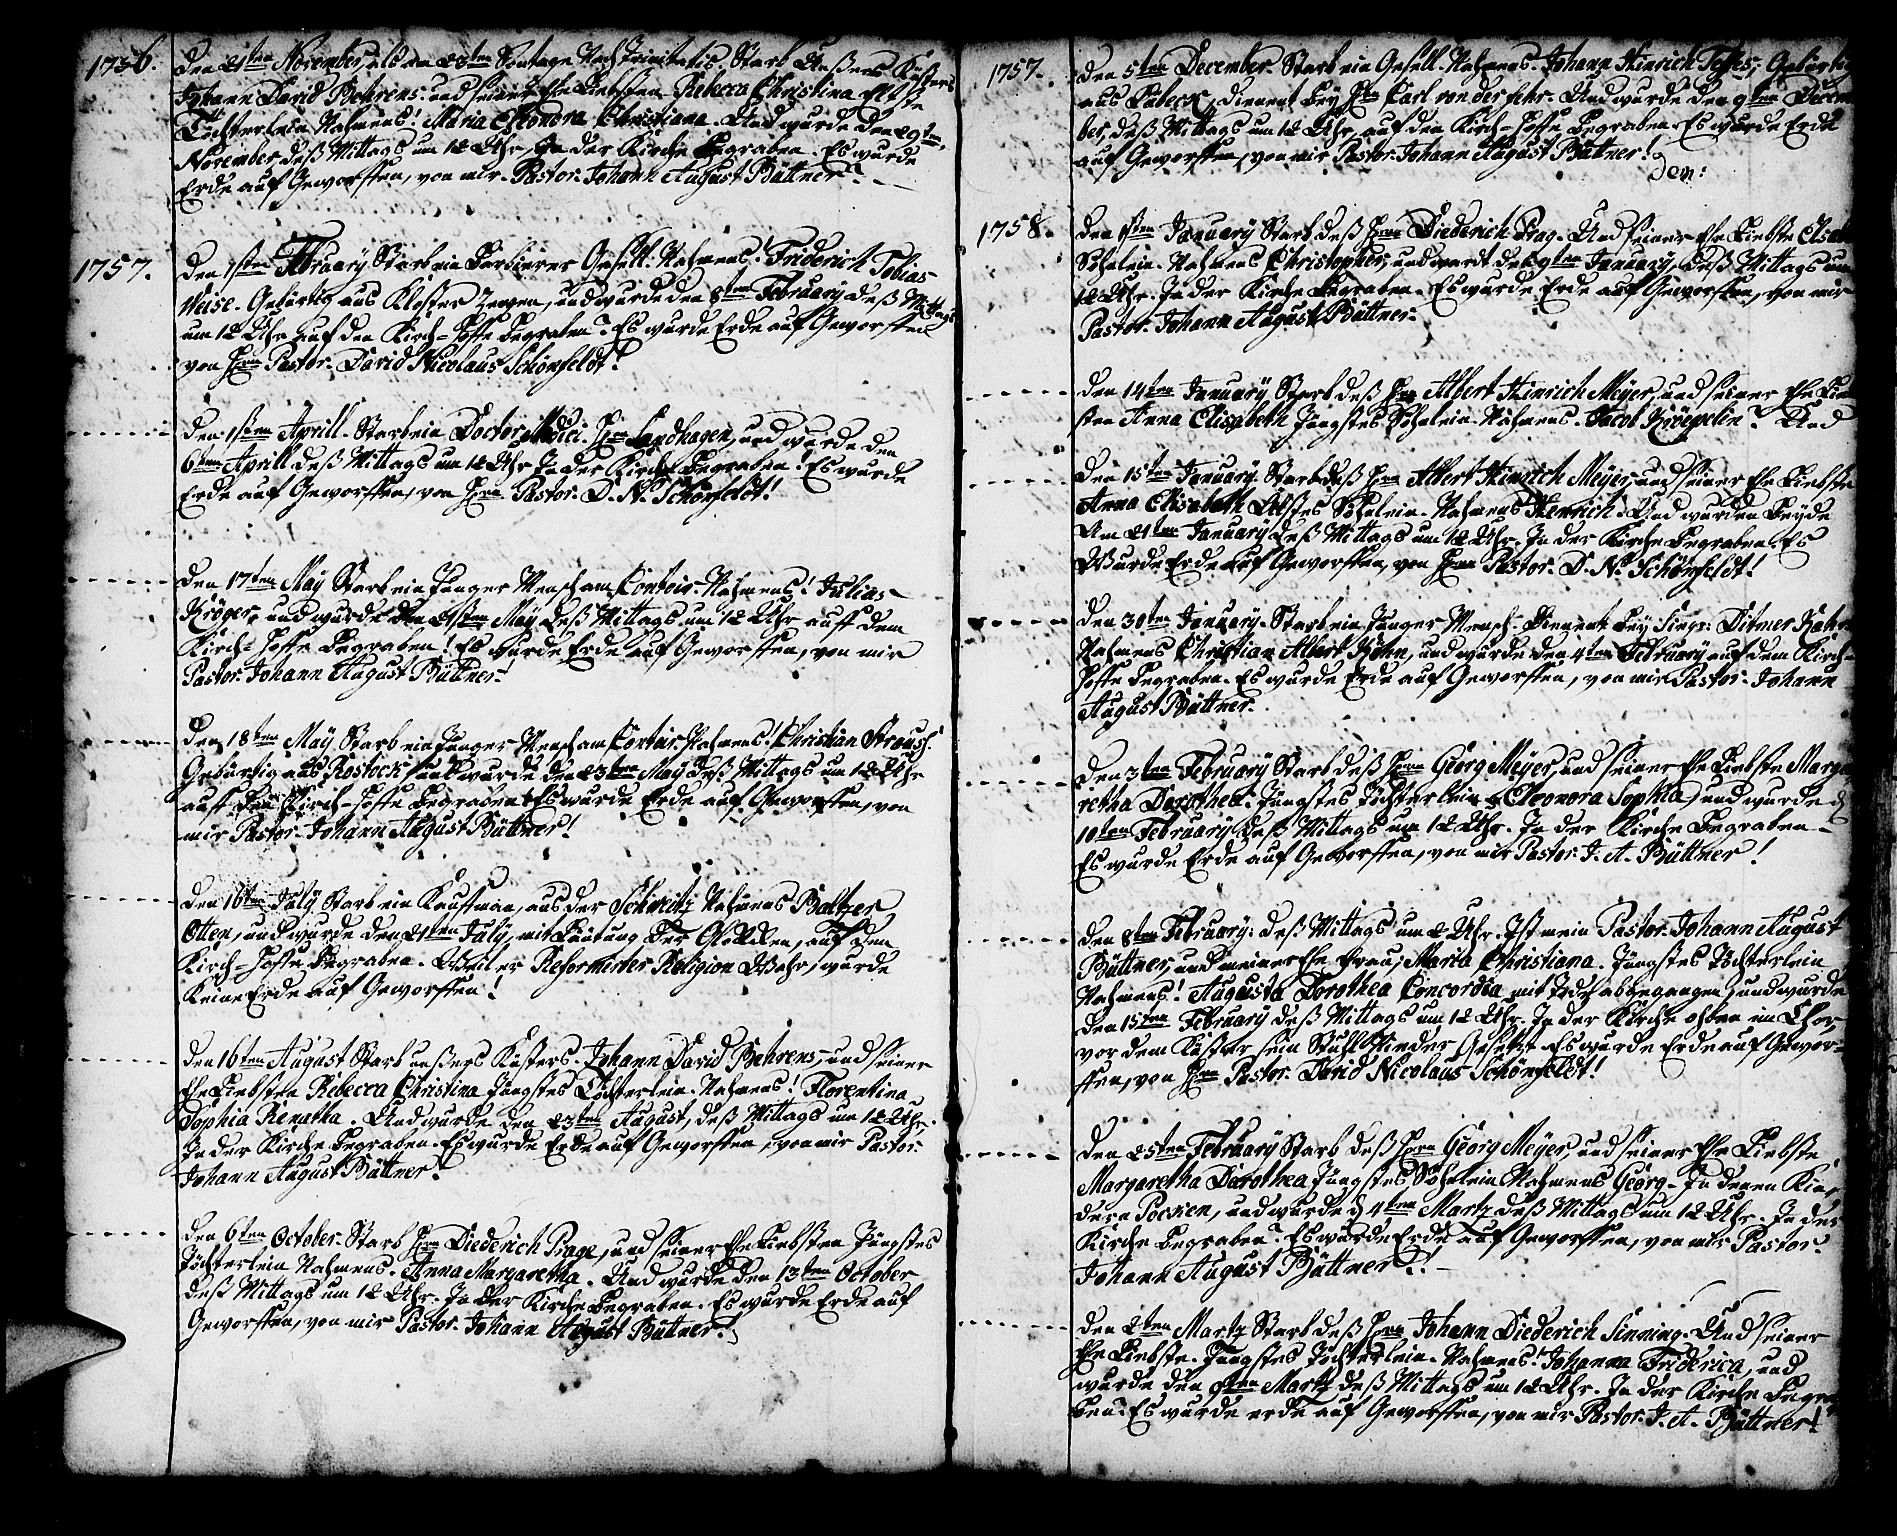 1756.
Den 21ten November, als am 23ten Sontage Nach Trinitatis. Starb Unßers Küsters
Johann David Behrens, und seiner Ehe Liebsten Rebecca Christina Elste
Töchterlein Nahmens! Maria Eleonora Christiana. Und wurde den 29ten
November deß Mittags um 12 Uhr, In der Kirche Begraben. Es wurde
Erde auf Geworffen, von mir Pastor. Johann August Büttner.
1757.
Den 1sten February Starb ein Barbierer Gesell: Nahmens, Friderich Tobias
Weise. Gebürtig aus Kloster Zeven, und wurde den 8ten February deß Mittags
um 12 Uhr auf den Kirch-Hoffe Begraben. Es wurde Erde auf Geworffen
von Hrn Pastor. David Nicolaus Schönfeldt!
Den 1sten Aprill. Starb ein Doctor Medici. Hrn Landhagen, und wurde den
6ten Aprill deß Mittags um 12 Uhr In der Kirche Begraben! Es wurde
Erde auf Geworffen, von Hrn Pastor. D. N. Schönfeldt!
Den 17ten May Starb ein Junger Mensch am Contoir. Nahmens! Julias
Kröger, und wurde den 21sten May deß Mittags um 12 Uhr auff dem
Kirch-Hoffe Begraben! Es wurde Erde auf Geworffen, von mir
Pastor. Johann August Büttner.!
Den 18ten May Starb ein Junger Mensch am Contoir. Nahmens! Christian Strauß.
Gebürtig aus Rostock, und wurde den 23ten May deß Mittags um 12 Uhr
auff den Kirch-Hoffe Begraben. Es wurde Erde auf Geworffen, von
mir Pastor. Johann August Büttner!
Den 16ten July Starb ein Kauffman, aus der Schweitz Nahmens Baltzer
Otten, und wurde den 21ten July, mit Läutung Der Glokken, auf den
Kirch-Hoffe Begraben. Weil er Reformirter Religion Wahr, wurde
Keine Erde auf Geworffen!
Den 16ten August Starb unßers Küsters. Johann David Behrens, und seiner
Ehe Liebsten Rebecca Christina Jüngstes Töchterlein. Nahmens! Florentina
Sophia Renatha. Und wurde den 23ten August, deß Mittags um 12 Uhr.
In der Kirche Begraben. Es wurde Erde auf Geworffen, von mir Pastor.
Johann August Büttner!
Den 6ten October. Starb Hrn Diederich Prage, und seiner Ehe Liebsten Jüngstes
Töchterlein Nahmens. Anna Margaretha. Und wurde den 13ten October
deß Mittags um 12 Uhr. In der Kirche Begraben. Es wurde Erde auf
Geworffen, von mir Pastor. Johann August Büttner!
1757.
Den 5ten December. Starb ein Gesell. Nahmens Johann Hinrich Gebürtig
aus Lübeck, Dienent bey Hrn Carl von der Fehr. Und wurde den 9ten Decem
ber, deß Mittags um 12 Uhr, auf den Kirch-Hoffe Begraben. Es wurde Erde
auf Geworffen, von mir Pastor. Johann August Büttner!
Den:
1758.
Den 1sten January Starb deß Hrn Diederich Prag. Und seiner Ehe Liebste Elsabe
Söhnlein. Nahmens Christopher, und ward den 9ten January, deß Mittags um
12 Uhr. In der Kirche Begraben. Es wurde Erde auf Geworffen, von mir
Pastor. Johann August Büttner.
Den 14ten January, Starb deß Hrn Albert Hinrich Meyer, und seiner Ehe Lieb
sten Anna Elisabeth Jüngstes Söhnlein. Nahmens. Jacob Kröepelin. Und
Den 15ten January. Starb deß Hrn Albert Hinrich Meyer, und seiner Ehe Liebste
Anna Elisabeth Elstes Söhnlein. Nahmens Henrich. Und wurden Beyde
Am 21ten January deß Mittags um 12 Uhr. In der Kirche Begraben. Es
Wurde Erde auf Geworffen, von Hrn Pastor. D. N. Schönfeldt!
Den 30ten January. Starb ein Junger Mensch. Dienent bey Siegr: Ditmer
Nahmens Christian Albert Köhn, und wurde den 4ten February auf dem Kirch-
Hoffe Begraben. Es wurde Erde auf Geworffen, von mir Pastor. Johann
August Büttner.
Den 3ten February Starb deß Hrn Georg Meyer, und seiner Ehe Liebste Marga
retha Dorothea. Jüngstes Töchterlein Eleonora Sophia, und wurde d
10ten February deß Mittags um 12 Uhr. In der Kirche Begraben.
Es wurde Erde auf Geworffen, von mir Pastor. J. A. Büttner!
Den 8ten February: deß Mittags um 2 Uhr. Ist mein Pastor. Johann August
Büttner, und meiner Ehe Frau, Maria Christiana. Jüngstes Töchterlein
Nahmens! Augusta Dorothea Concordia mit Todt abgegangen, und wurde
den 15ten February deß Mittags um 12 Uhr. In der Kirche oben im Chor,
vor dem Küster sein Stuhl Nieder Gesetzt. Es wurde Erde auf Gewor-
ffen, von Hrn Pastor. David Nicolaus Schönfeldt!
Den 25ten February Starb deß Hrn Georg Meyer, und seiner Ehe Liebste
Margaretha Dorothea Jüngstes Söhnlein Nahmens Georg. In denen Kin-
dern Pocken, und wurde d 4ten Martz deß Mittags um 12 Uhr. In der
Kirche Begraben. Es wurde Erde auf Geworffen, von mir Pastor.
Johann August Büttner!
Den 2ten Martz Starb deß Hrn Johann Diederich Sinning. Und seiner
Ehe Liebste. Jüngstes Töchterlein. Nahmens! Johanna Friderica, und
wurde den 9ten Martz, deß Mittags um 12 Uhr. In der Kirche Begra
ben. Es wurde Erde auf Geworffen, von mir Pastor. J. A. Büttner!